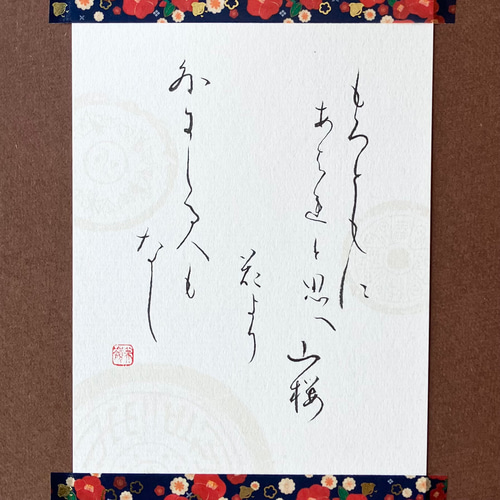 もろともに
あはれと思へ
山桜
花より
外にしる人も
なし